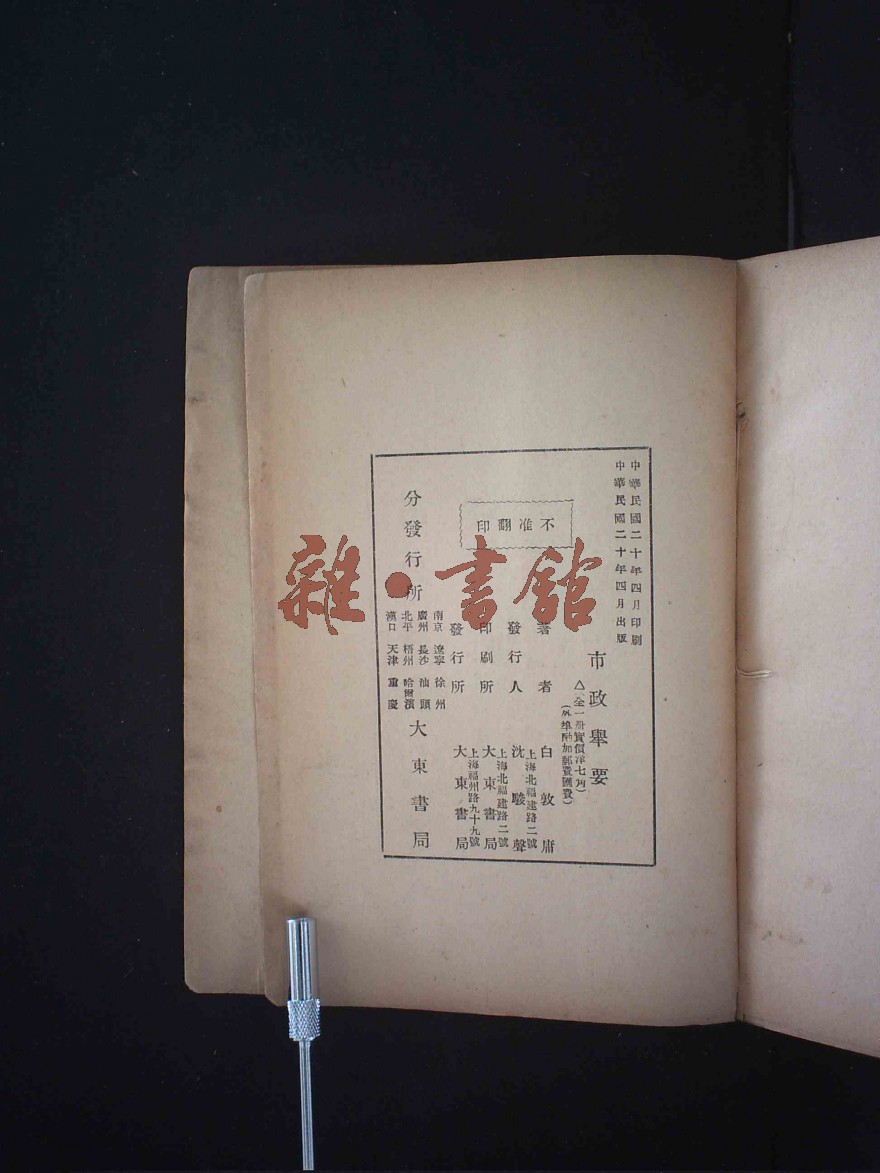 中華民國二十年四月印刷
中華民國二十年四月出版
市政舉要
△(全一冊實價洋七角)
(外埠酌加郵費匯費)
不准翻印
著者 白敦庸
上海北福建路二號
發行人 沈駿聲
上海北福建路二號
印刷所 大東書局
上海福州路九十九號
發行所 大東書局
分發行所
南京 遼寧 徐州
廣州 長沙 汕頭
北平 梧州 哈爾濱
漢口 天津 重慶
大東書局
雜·書館